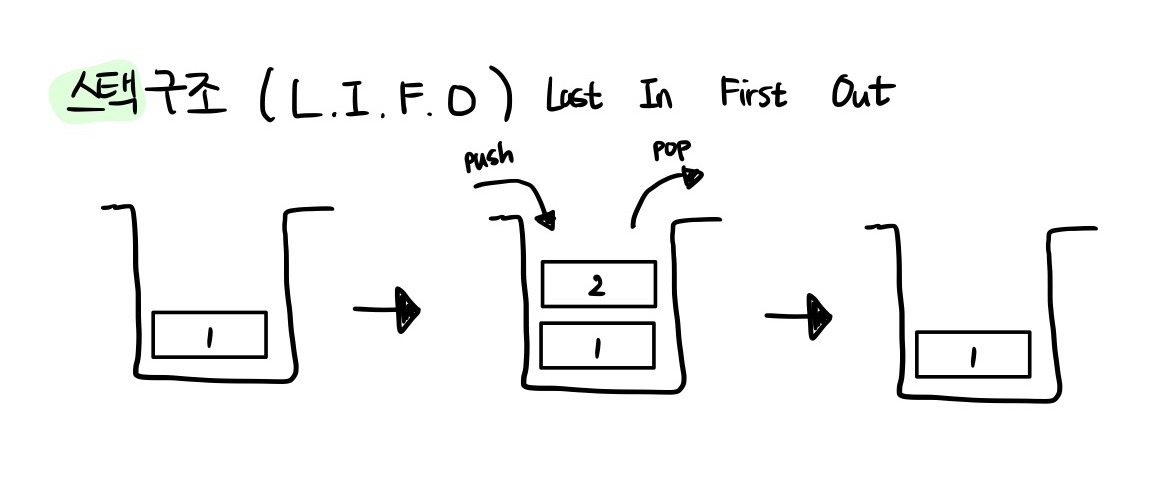 스택구조 (L.I.F.O) Last In First Out
push
pop
2
1
1
1